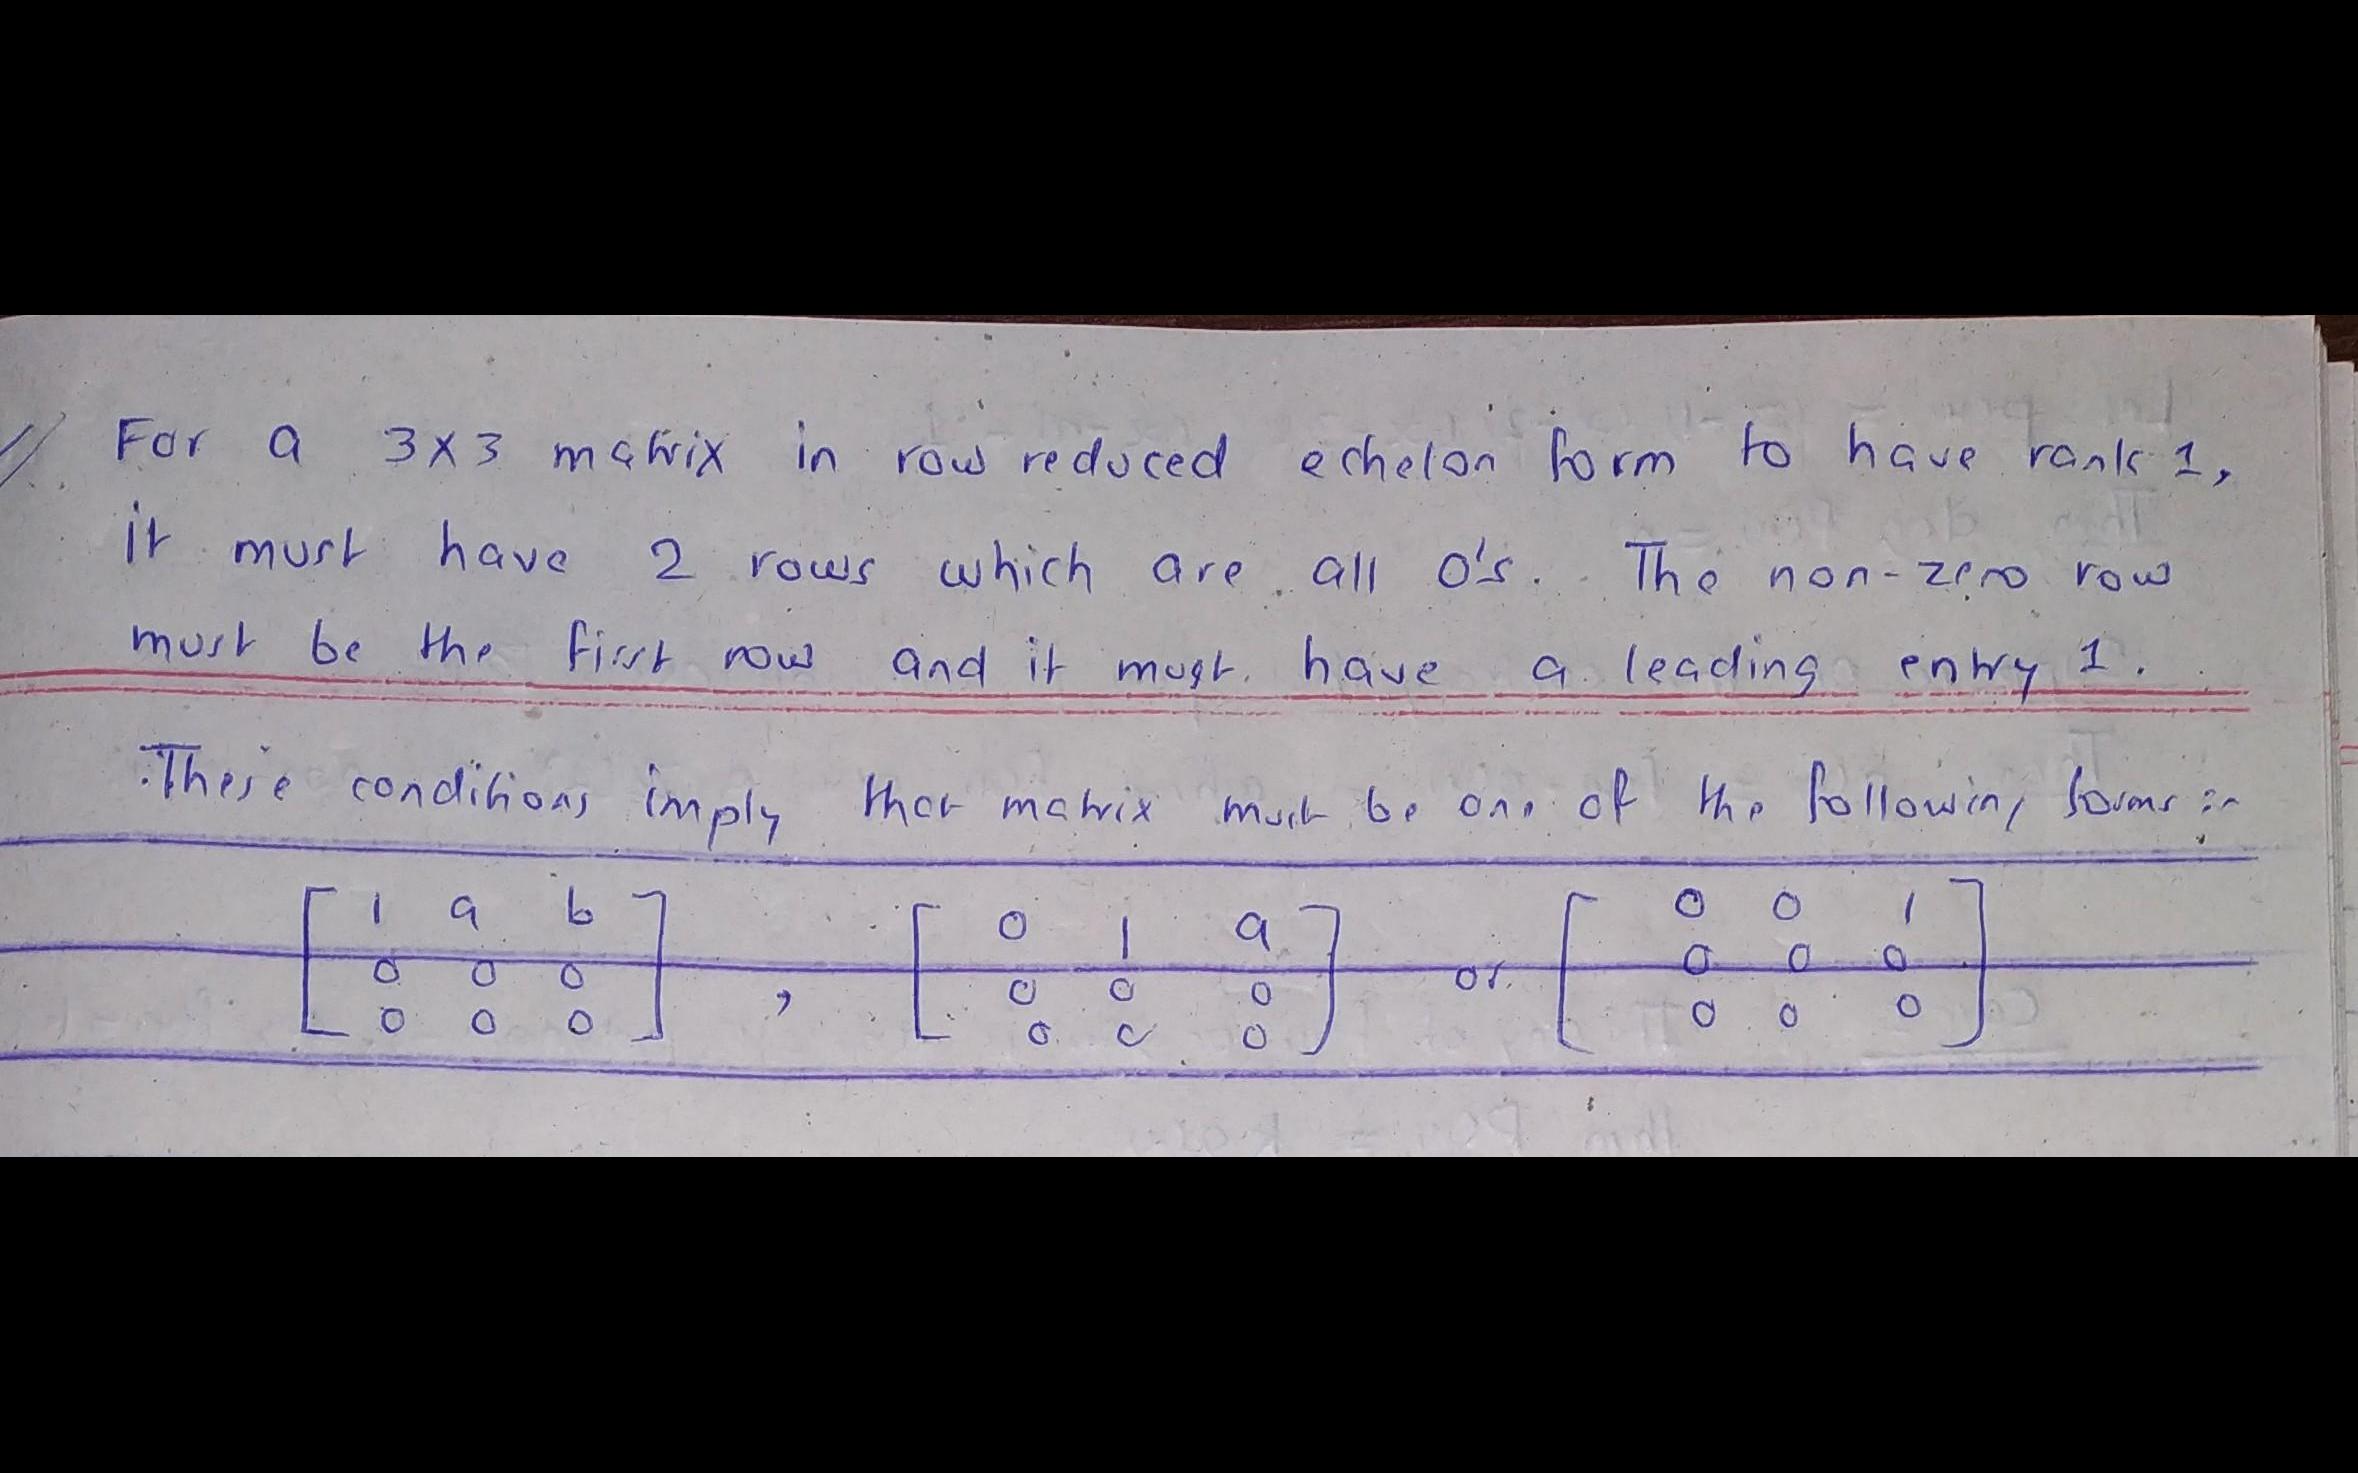 For a 3x3 matrix in row reduced echelon form to have rank 1,
it must have 2 rows which are all 0's. The non-zero row
must be the first row and it must have a leading entry 1.
These conditions imply that matrix must be one of the following forms :-
[1 a b] [0 1 a] [0 0 1]
[0 0 0] , [0 0 0] or [0 0 0]
[0 0 0] [0 0 0] [0 0 0]